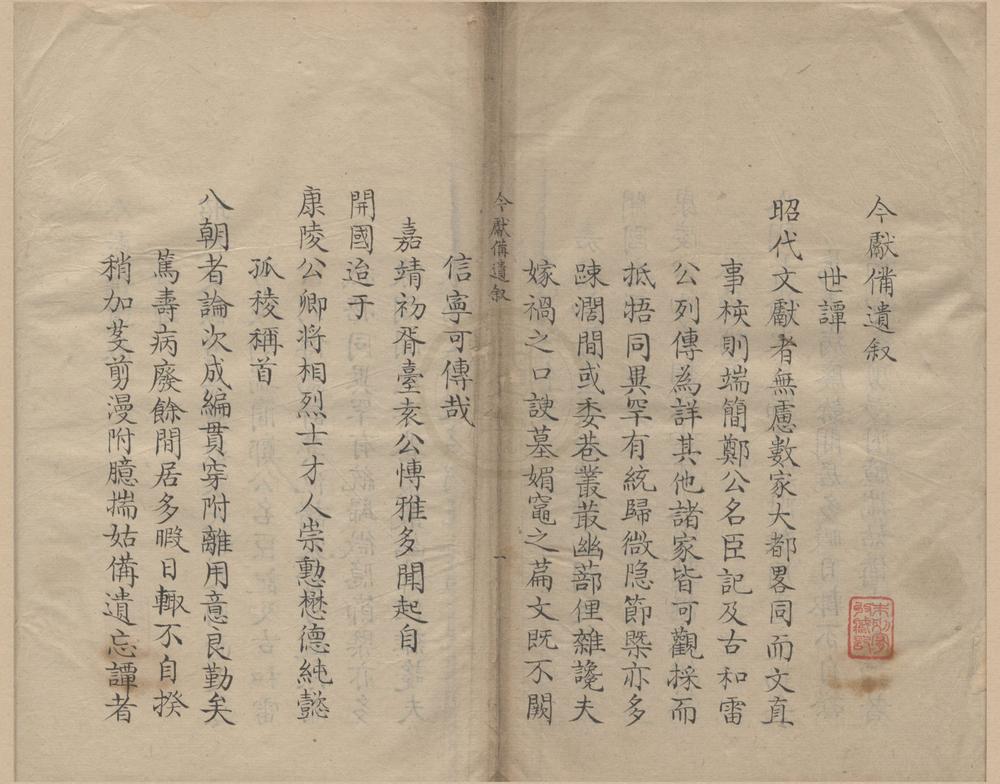 今獻備遺叙
世譚
昭代文獻者無慮數家大都畧同而文直
事核則端簡鄭公名臣記及古和雷
公列傳為詳其他諸家皆可觀採而
抵牾同異罕有統歸微隐節槩亦多
踈濶間或委巷叢叢幽蔀俚雜讒夫
嫁禍之口諛墓媚竈之篇文既不闕
今獻備遺叙
一
信寧可傳哉
嘉靖初胥臺袁公慱雅多聞起自
開國迨于
康陵公卿将相烈士才人崇勲懋德純懿
孤稜稱首
八朝者論次成編貫穿附離用意良勤矣
篤壽病廢餘間居多暇日輙不自揆
稍加芟剪漫附臆揣姑備遺忘譚者